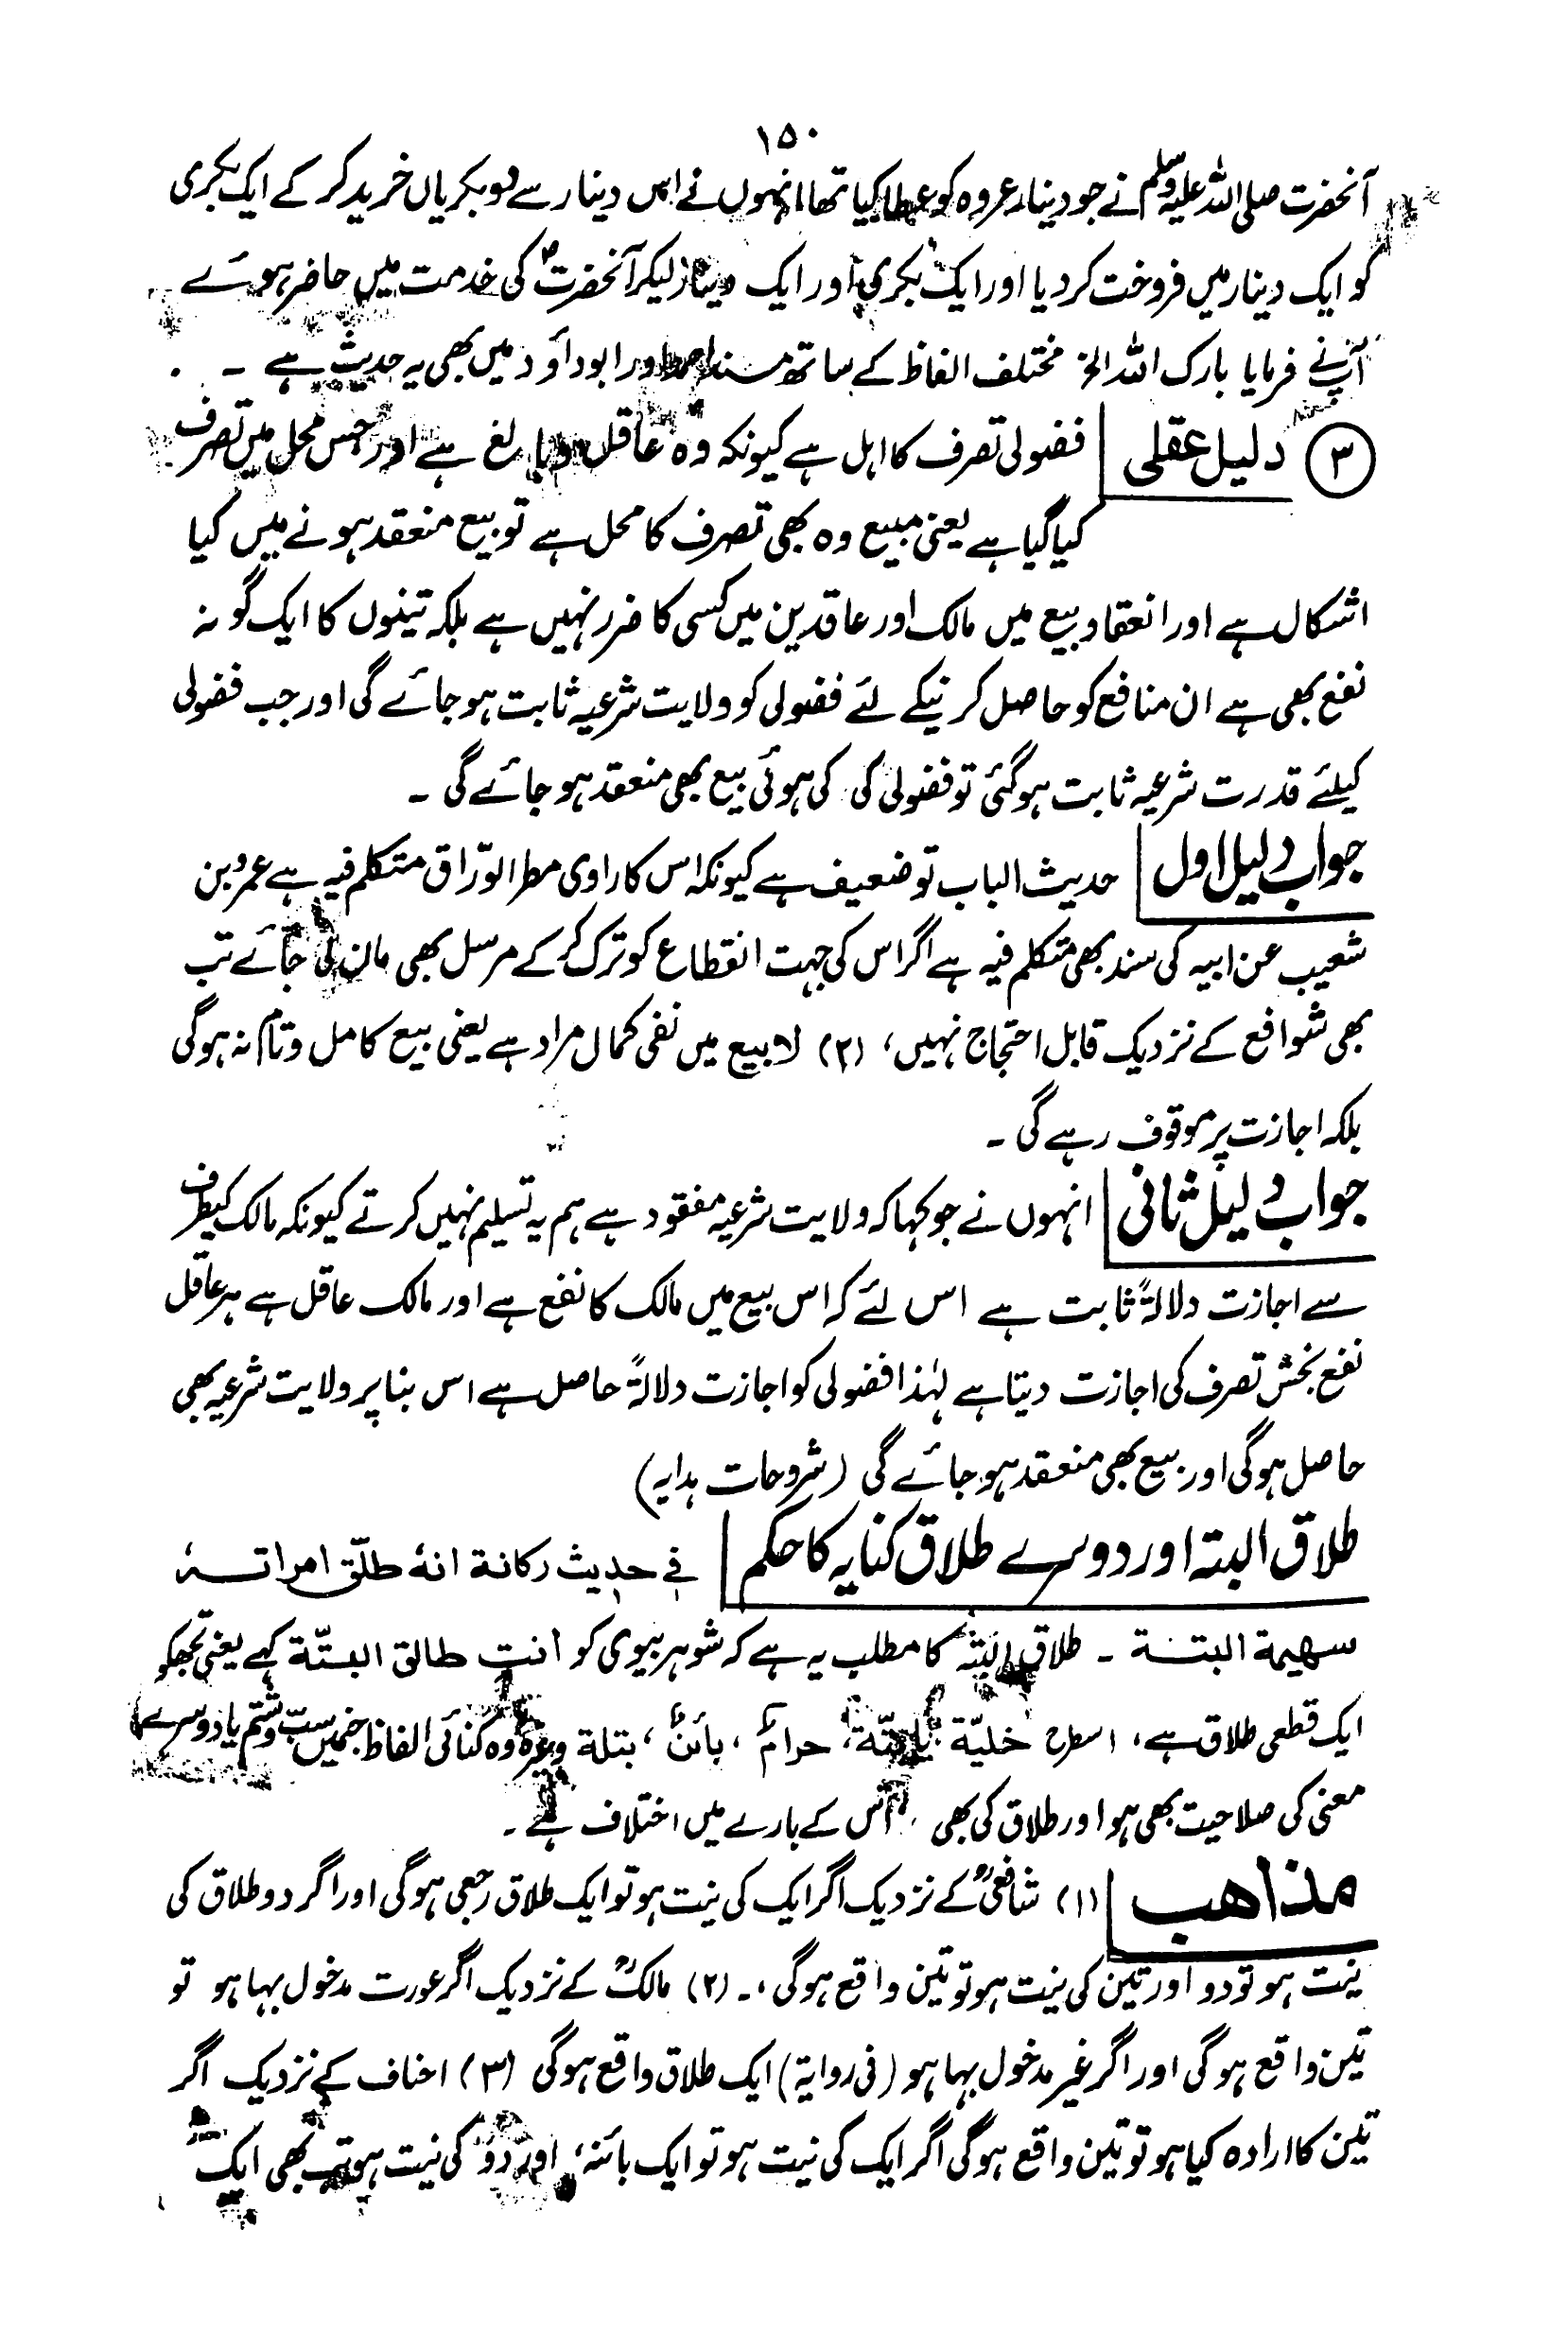 ۱۵۰
آنحضرت صلی اللہ علیہ وسلم نے جو دینار عروہ کو عطا کیا تھا انہوں نے اس دینار سے دو بکریاں خرید کر کے ایک بکری
کو ایک دینار میں فروخت کر دیا اور ایک بکری اور ایک دینار لیکر آنحضرتؐ کی خدمت میں حاضر ہوئے
آپؐ نے فرمایا بارک اللہ الخ مختلف الفاظ کے ساتھ مسند احمد اور ابوداؤد میں بھی یہ حدیث ہے ۔
(۳) دلیل عقلی | فضولی تصرف کا اہل ہے کیونکہ وہ عاقل وبالغ ہے اور جس محل میں تصرف
کیا گیا ہے یعنی مبیع وہ بھی تصرف کا محل ہے تو بیع منعقد ہونے میں کیا
اشکال ہے اور انعقاد بیع میں مالک اور عاقدین میں کسی کا ضرر نہیں ہے بلکہ تینوں کا ایک گونہ
نفع بھی ہے ان منافع کو حاصل کرنیکے لئے فضولی کو ولایت شرعیہ ثابت ہو جائے گی اور جب فضولی
کیلئے قدرت شرعیہ ثابت ہوگئی تو فضولی کی کی ہوئی بیع بھی منعقد ہو جائے گی ۔
جواب دلیل اول | حدیث الباب تو ضعیف ہے کیونکہ اس کا راوی مطر الورّاق متکلم فیہ ہے عمرو بن
شعیب عن ابیہ کی سند بھی متکلم فیہ ہے اگر اس کی جہت انقطاع کو ترک کر کے مرسل بھی مان لی جائے تب
بھی شوافع کے نزدیک قابل احتجاج نہیں، (۲) لا بیع میں نفی کمال مراد ہے یعنی بیع کامل و تام نہ ہوگی
بلکہ اجازت پر موقوف رہے گی ۔
جواب دلیل ثانی | انہوں نے جو کہا کہ ولایت شرعیہ مفقود ہے ہم یہ تسلیم نہیں کرتے کیونکہ مالک کیطرف
سے اجازت دلالۃً ثابت ہے اس لئے کہ اس بیع میں مالک کا نفع ہے اور مالک عاقل ہے ہر عاقل
نفع بخش تصرف کی اجازت دیتا ہے لہٰذا فضولی کو اجازت دلالۃً حاصل ہے اس بنا پر ولایت شرعیہ بھی
حاصل ہوگی اور بیع بھی منعقد ہو جائے گی (شروحات ہدایہ)
طلاق البتہ اور دوسرے طلاق کنایہ کا حکم | فی حدیث رکانة انهٗ طلّق امراتهٗ
سهيمة البتة ۔ طلاق البتّہ کا مطلب یہ ہے کہ شوہر بیوی کو انتِ طالق البتّة کہے یعنی تجھکو
ایک قطعی طلاق ہے، اسطرح خلیّة، حرامٌ، بائنٌ، بتلة وغیرہ وہ کنائی الفاظ جنمیں سبّ وشتم یا دوسرے
معنی کی صلاحیت بھی ہو اور طلاق کی بھی اس کے بارے میں اختلاف ہے ۔
مذاهب | (۱) شافعیؒ کے نزدیک اگر ایک کی نیت ہو تو ایک طلاق رجعی ہوگی اور اگر دو طلاق کی
نیت ہو تو دو اور تین کی نیت ہو تو تین واقع ہوگی، ۔ (۲) مالکؒ کے نزدیک اگر عورت مدخول بہا ہو تو
تین واقع ہوگی اور اگر غیر مدخول بہا ہو (فی روایۃ) ایک طلاق واقع ہوگی (۳) احناف کے نزدیک اگر
تین کا ارادہ کیا ہو تو تین واقع ہوگی اگر ایک کی نیت ہو تو ایک بائنہ، اور دو کی نیت ہو تب بھی ایک